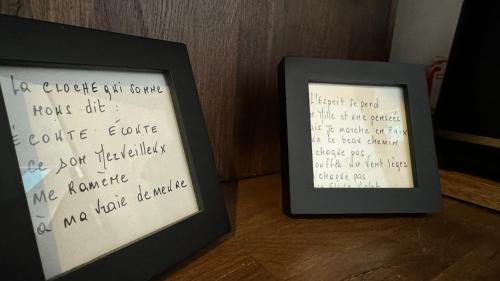 La CLOCHE qui SONNE
NOUS dit :
ÉCOUTE ÉCOUTE
ce SON MERVEILLEUX
ME RAMÈNE
à MA VRAIE demeure
L'Esprit se perd
Mille et une pensées
Mais je marche en PAIX
sur ce beau chemin
chaque pas
souffle un vent léger
chaque pas